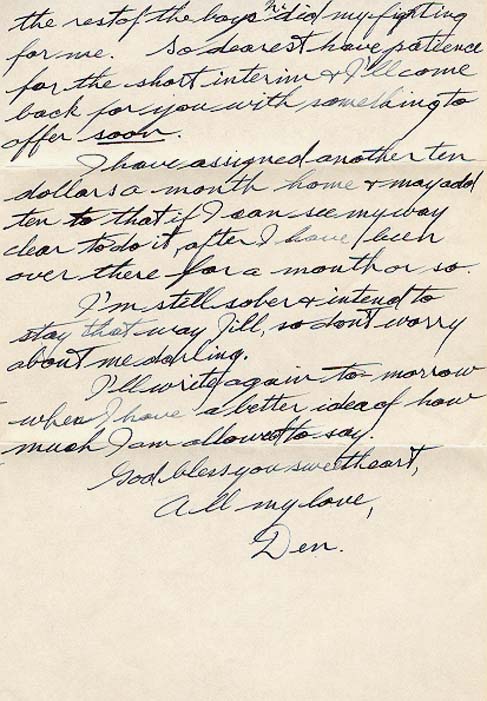 the rest of the boys did my fighting
for me. So dearest have patience
for the short interim & I'll come
back for you with something to
offer soon.
I have assigned another ten
dollars a month home & may add
ten to that if I can see my way
clear to do it, after I have been
over there for a month or so.
I'm still sober & intend to
stay that way Jill, so don't worry
about me darling.
I'll write again to-morrow
when I have a better idea of how
much I am allowed to say.
God bless you sweetheart,
All my love,
Den.